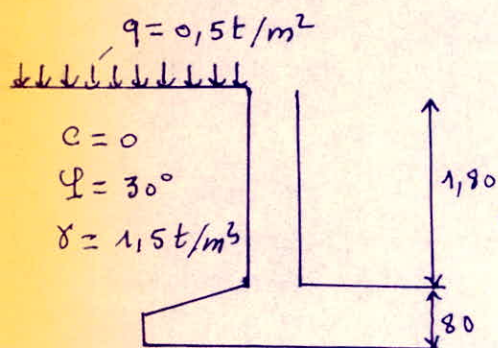 q = 0,5 t/m²
c = 0
φ = 30°
γ = 1,5 t/m³
1,80
80